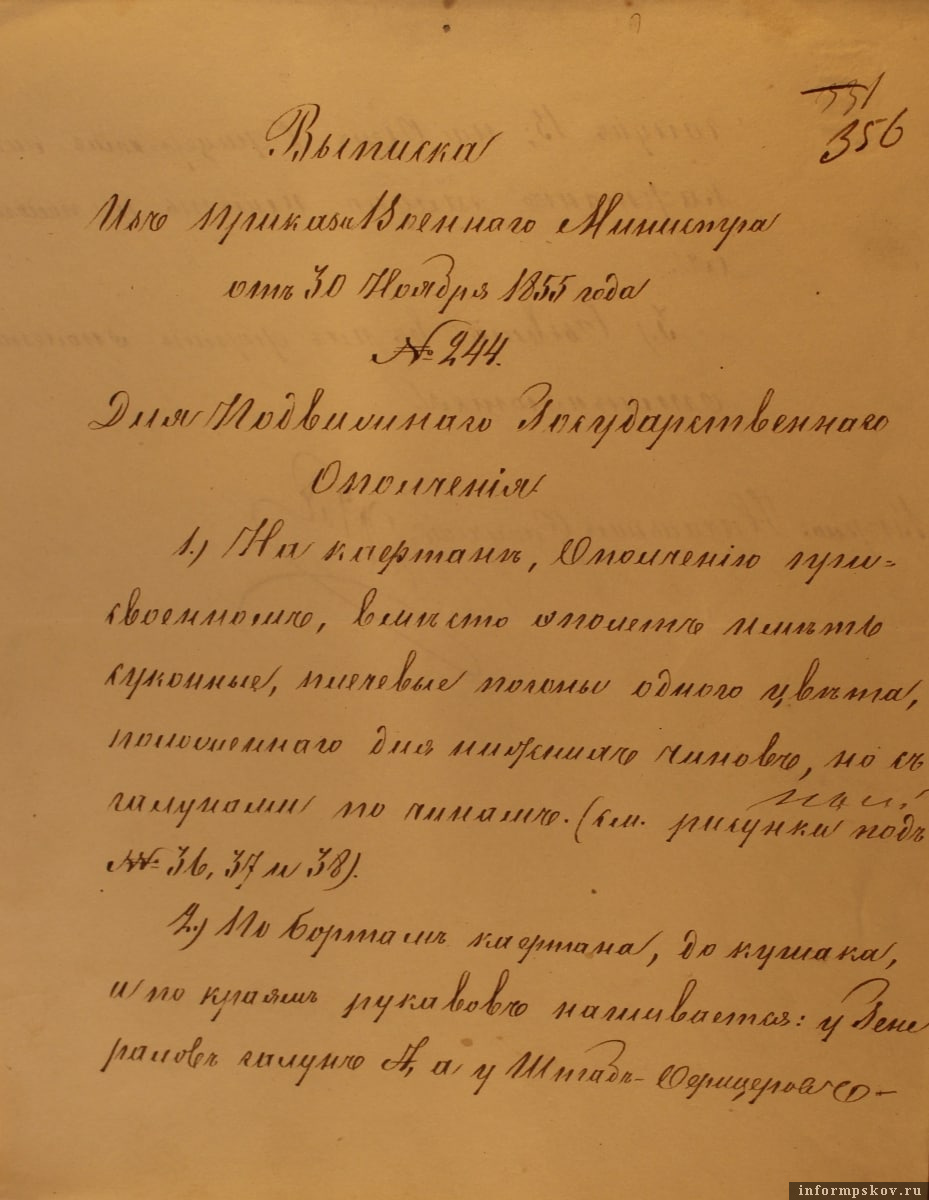 331
356
Выписка
Изъ приказа Военнаго Министра
отъ 30 Ноября 1855 года
№ 244.
Для Подвижнаго Государственнаго
Ополченія
1.) На кафтанѣ, Ополченію при-
своенномъ, вмѣсто эполетъ имѣть
суконные, плечевые погоны одного цвѣта,
положеннаго для нижнихъ чиновъ, но съ
галунами по чинамъ. (см. рисунки подъ
№№ 36, 37 и 38).
2.) По бортамъ кафтана, до кушака,
и по краямъ рукавовъ нашивается: у Гене
раловъ галунъ А, а у Штабъ-Офицеровъ
informpskov.ru